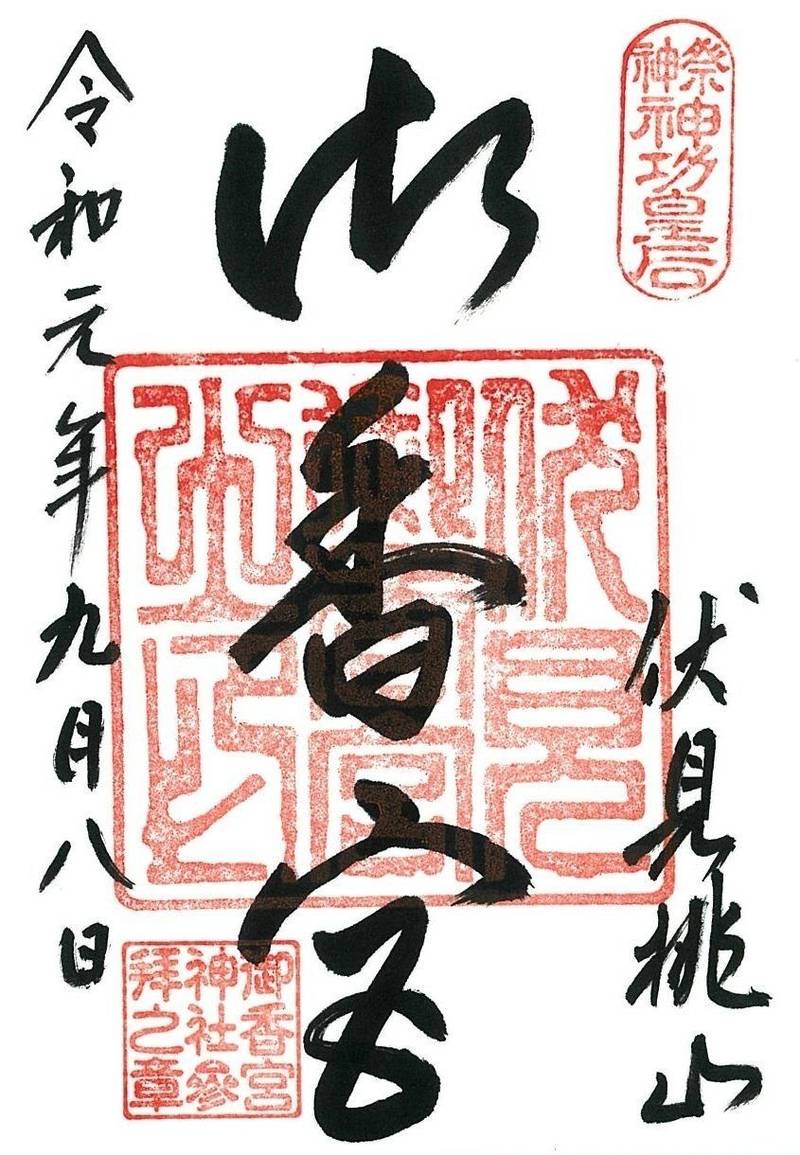 祭神
神功皇后
伏見桃山
御香宮
伏見
御香宮
之印
令和元年九月八日
御香宮
神社參
拜之章